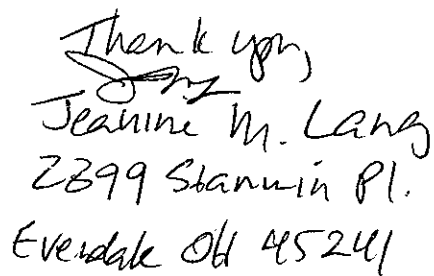 Thank you,
Jeanine M. Lang
2899 Stanwin Pl.
Evendale OH 45241